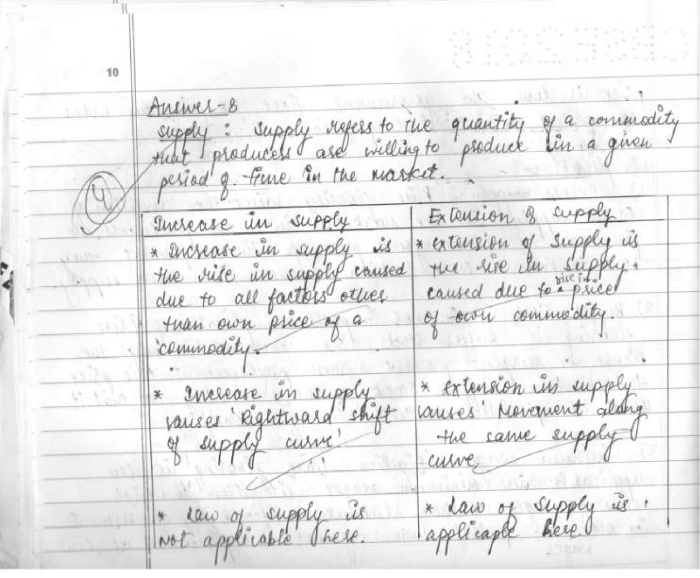 10
Answer-8
Supply : Supply refers to the quantity of a commodity
that producers are willing to produce in a given
period of time in the market.
4
Increase in supply
* Increase in supply is
the rise in supply caused
due to all factors other
than own price of a
commodity.
* Increase in supply
causes 'Rightward shift
of supply curve'
* Law of supply is
not applicable here.
Extension of supply
* extension of supply is
the rise in supply.
caused due to rise in price
of own commodity.
* extension in supply
causes 'Movement along
the same supply
curve
* Law of supply is
applicaple here.